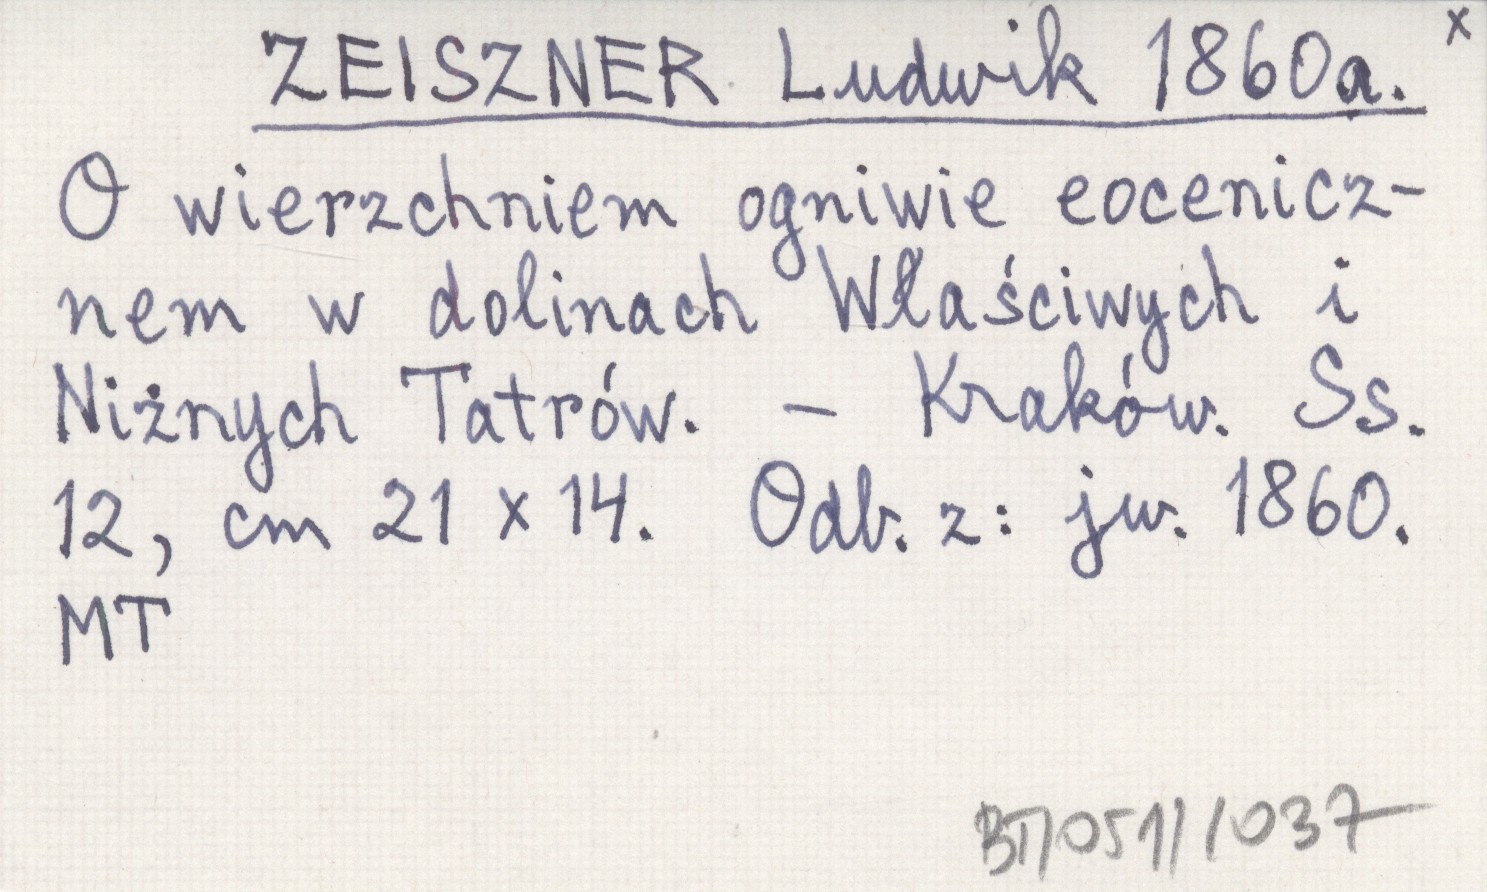 x
ZEISZNER Ludwik 1860a.
O wierzchniem ogniwie eocenicz-
nem w dolinach Właściwych i
Niżnych Tatrów. – Kraków. Ss.
12, cm 21 x 14. Odb. z: jw. 1860.
MT
BT/051/1037